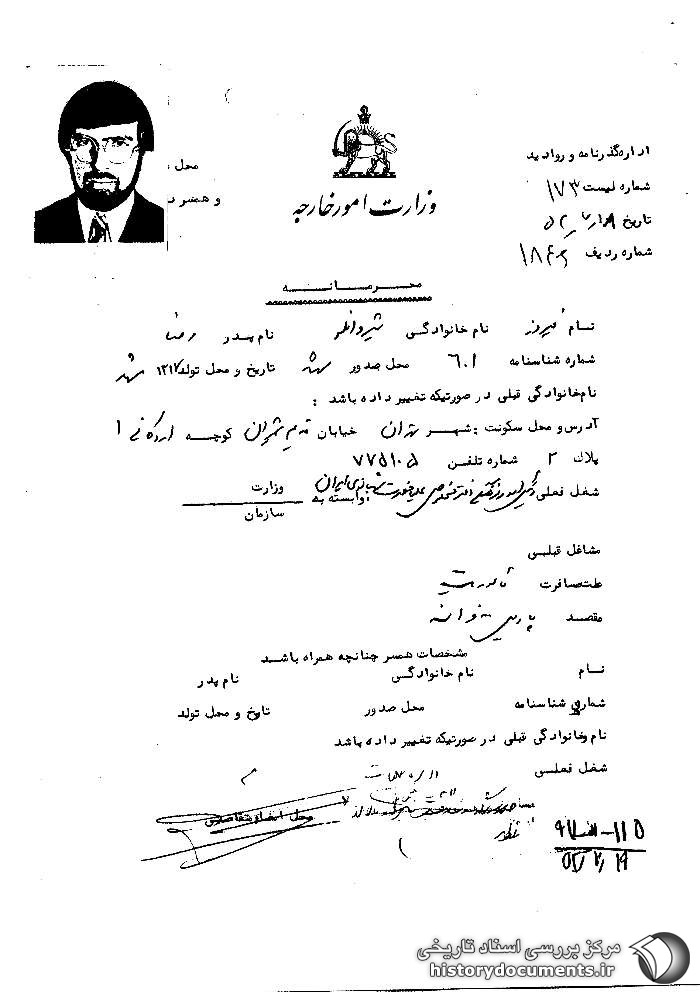 محل
و همسر
وزارت امور خارجه
اداره گذرنامه و روادید
شماره لیست ۱۷۳
تاریخ
شماره ردیف
محرمانه
نام فیروز نام خانوادگی شیروانلو نام پدر رضا
شماره شناسنامه ۶۰۱ محل صدور مشهد تاریخ و محل تولد ۱۳۱۷ مشهد
نام‌خانوادگی قبلی در صورتیکه تغییر داده باشد :
آدرس و محل سکونت : شهر تهران خیابان قدیم شمیران کوچه اردکانی ۱
پلاک ۲ شماره تلفن ۷۷۵۱۰۵
شغل فعلی دفتر مخصوص علیاحضرت شهبانوی ایران وابسته به وزارت
سازمان
مشاغل قبلی
علت مسافرت مأموریت
مقصد پاریس فرانسه
مشخصات همسر چنانچه همراه باشد
نام نام خانوادگی نام پدر
شماره شناسنامه محل صدور تاریخ و محل تولد
نام خانوادگی قبلی در صورتیکه تغییر داده باشد
شغل فعلی
محل امضاء متقاضی
مرکز بررسی اسناد تاریخی
historydocuments.ir